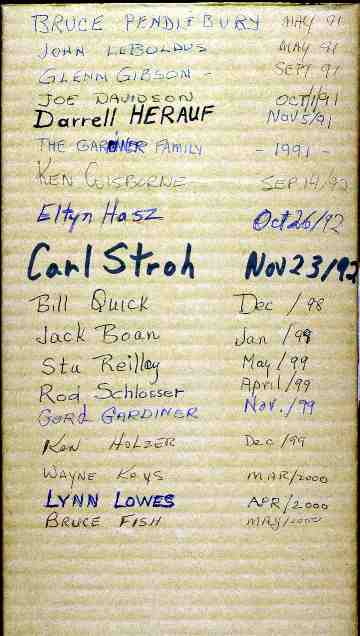 BRUCE PENDLEBURY MAY 91
JOHN LEBOLDUS MAY 91
GLENN GIBSON - SEPT 91
JOE DAVIDSON OCT/1/91
Darrell HERAUF Nov 5/91
THE GARDINER FAMILY - 1991 -
KEN GISBORNE SEP 14/92
Eltyn Hasz Oct 26/92
Carl Stroh Nov 23/92
Bill Quick Dec / 98
Jack Boan Jan / 99
Stu Reilley May / 99
Rod Schlosser April / 99
GORD GARDINER Nov. / 99
Ken HOLZER Dec / 99
WAYNE KAYS MAR/2000
LYNN LOWES APR/2000
BRUCE FISH MAY/2000